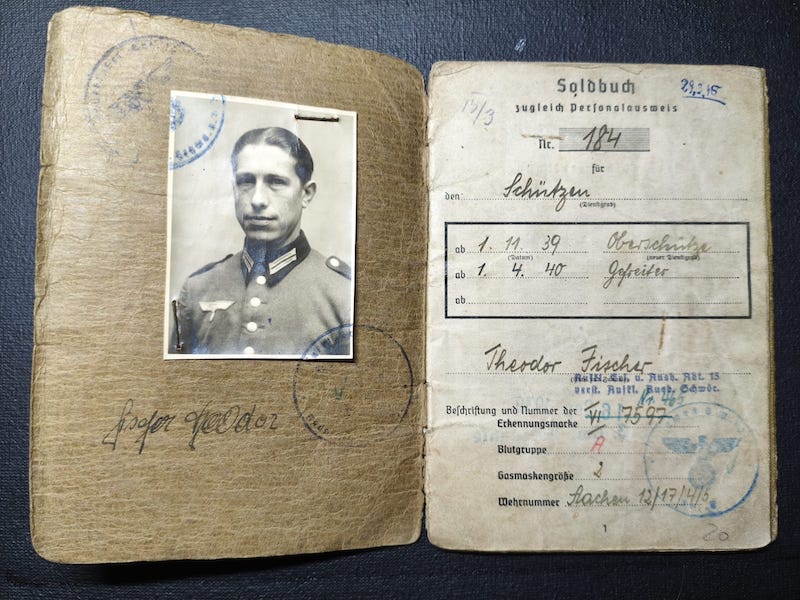 Fischer Theodor
Soldbuch
29.3.45
zugleich Personalausweis
15/3
Nr. 184
für
den Schützen
(Dienstgrad)
ab 1. 11. 39 Oberschütze
(Datum) (neuer Dienstgrad)
ab 1. 4. 40 Gefreiter
ab
Theodor Fischer
Aufkl. Ers. u. Ausb. Abt. 15
verst. Aufkl. Ausb. Schwdr.
Beschriftung und Nummer der
Erkennungsmarke VI 7597
Blutgruppe A
Gasmaskengröße 2
Wehrnummer Aachen 12/17/4/5
1
20